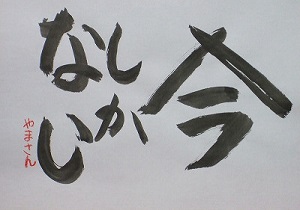 今
しか
ない
やまさん